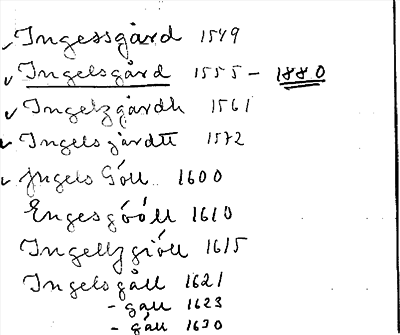 ✓ Ingessgård 1549
✓ Ingelsgård 1555 - 1880
✓ Ingelzgårdh 1561
✓ Ingelsgårdtt 1572
✓ Jngels Göll 1600
Engesgööll 1610
Ingellzgiöll 1615
Ingelsgåll 1621
- gåll 1623
- gåll 1630